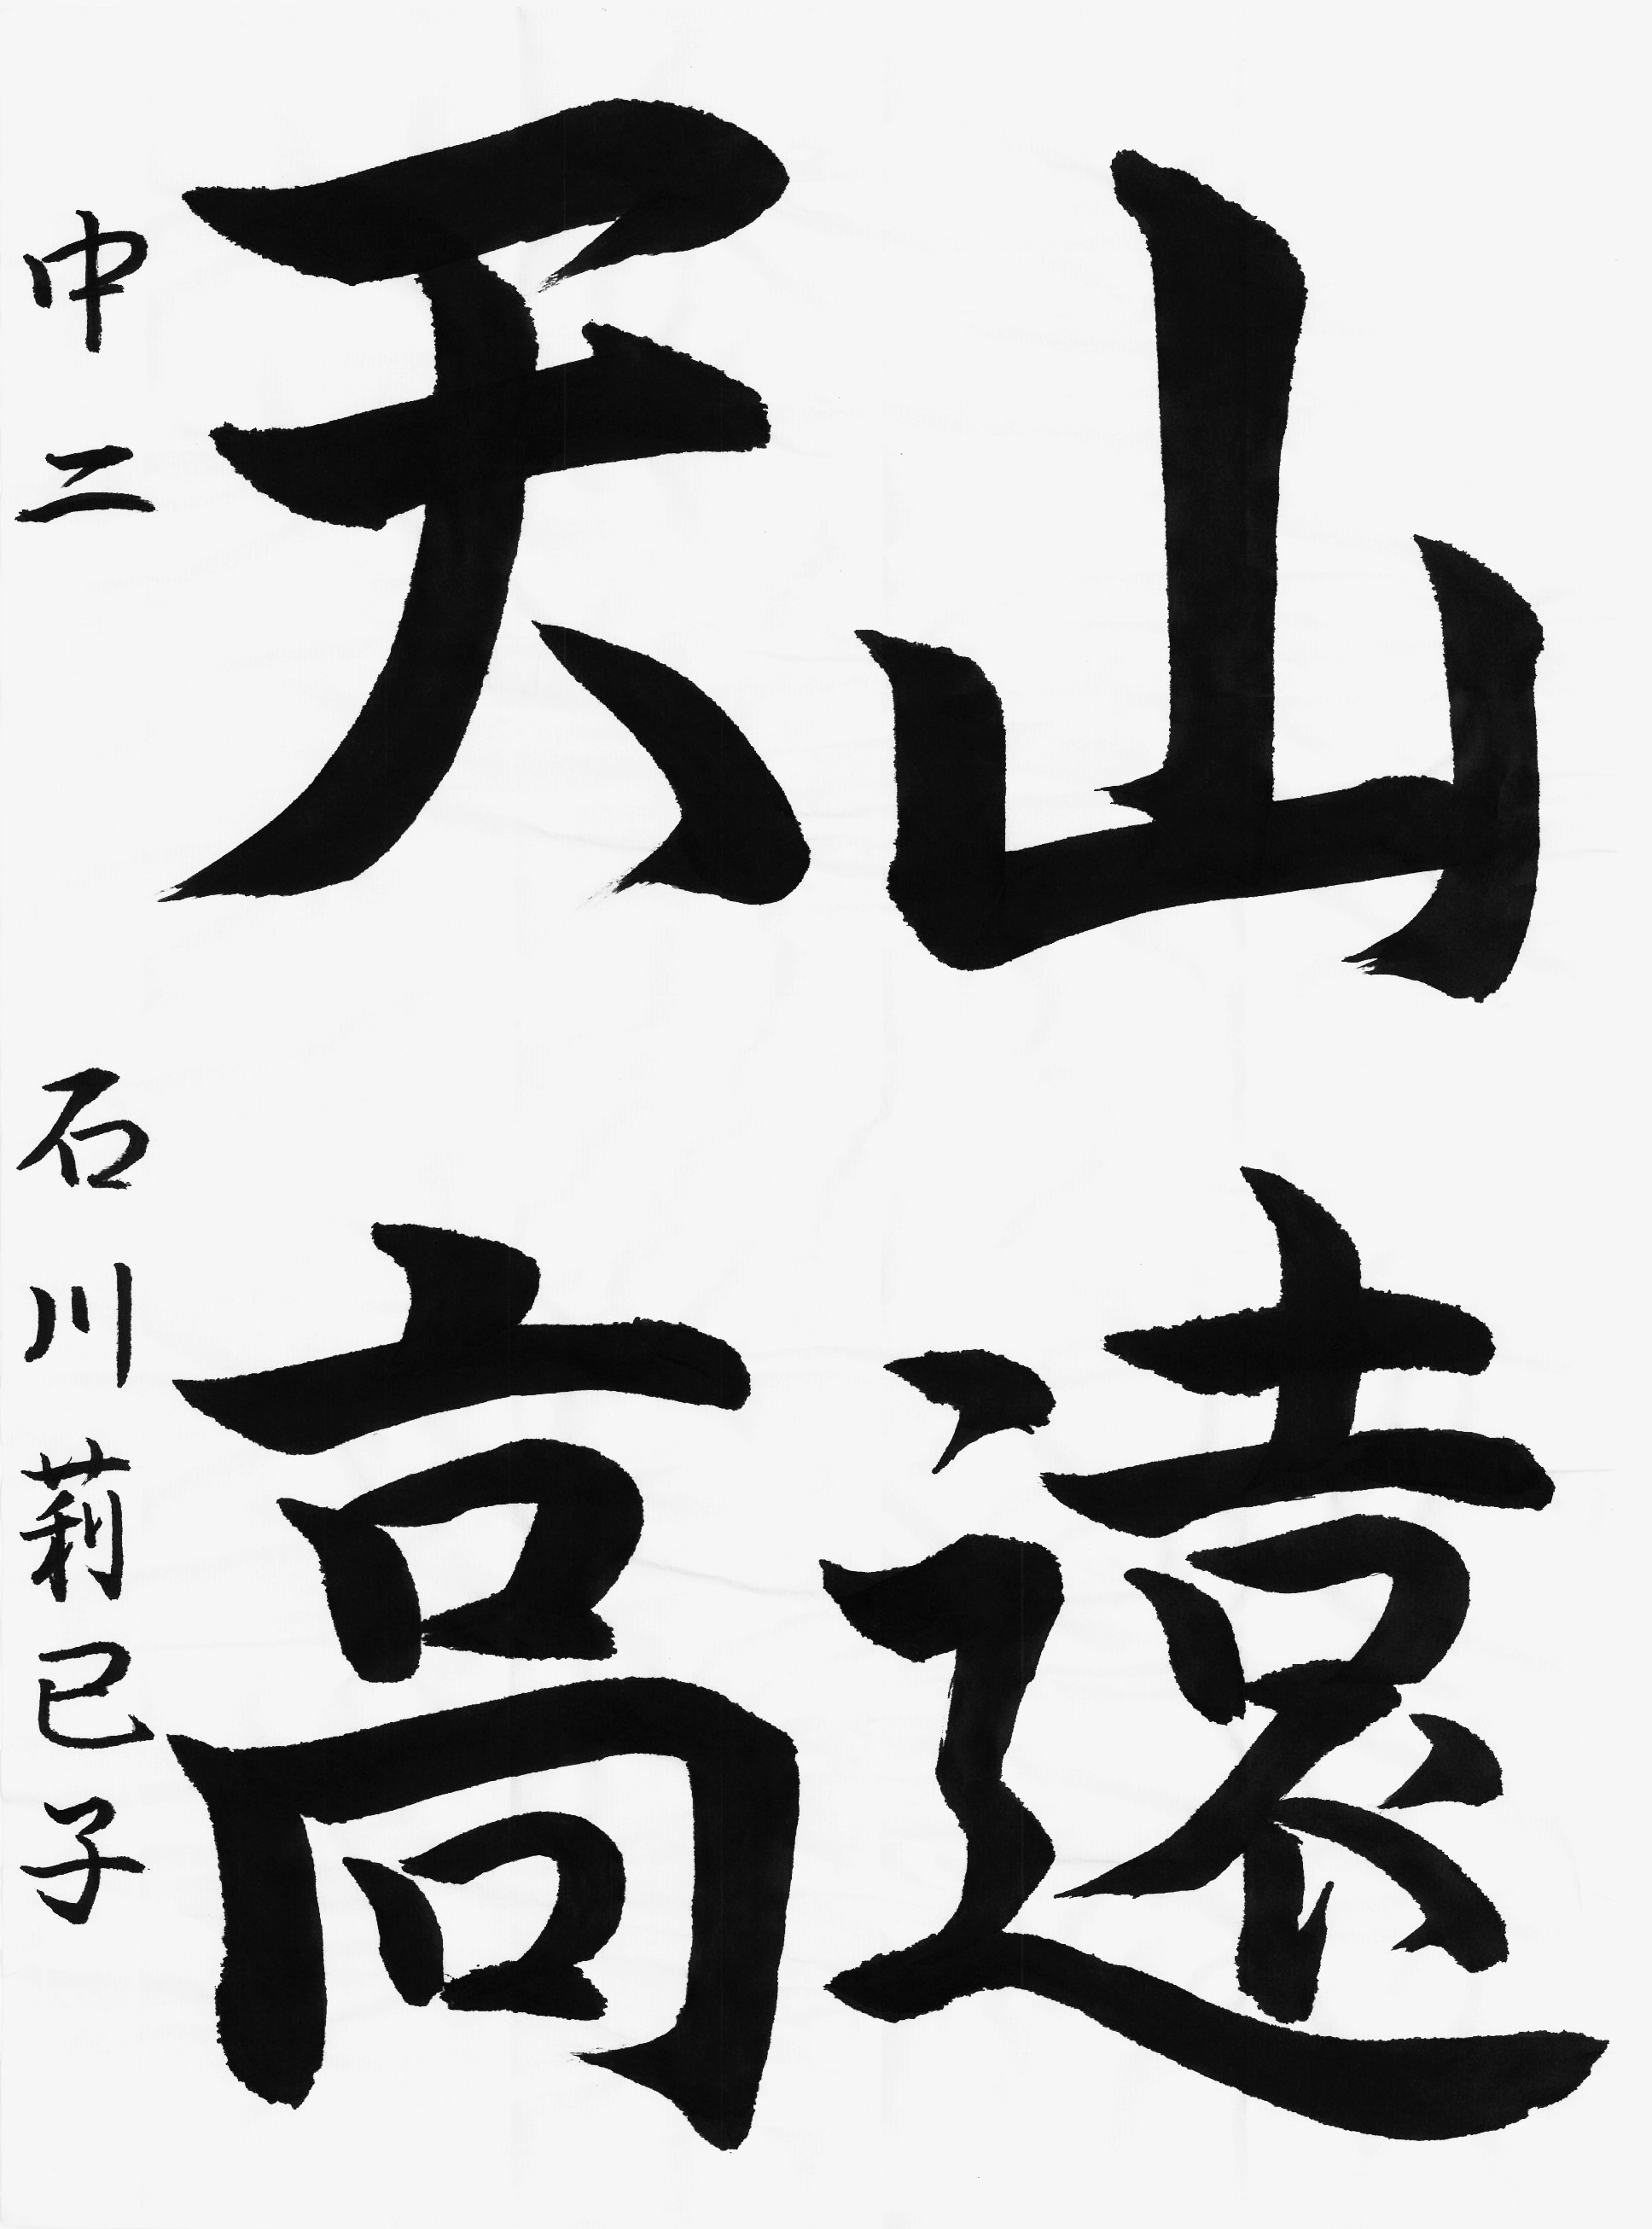 山遠
天高
中二 石川莉己子